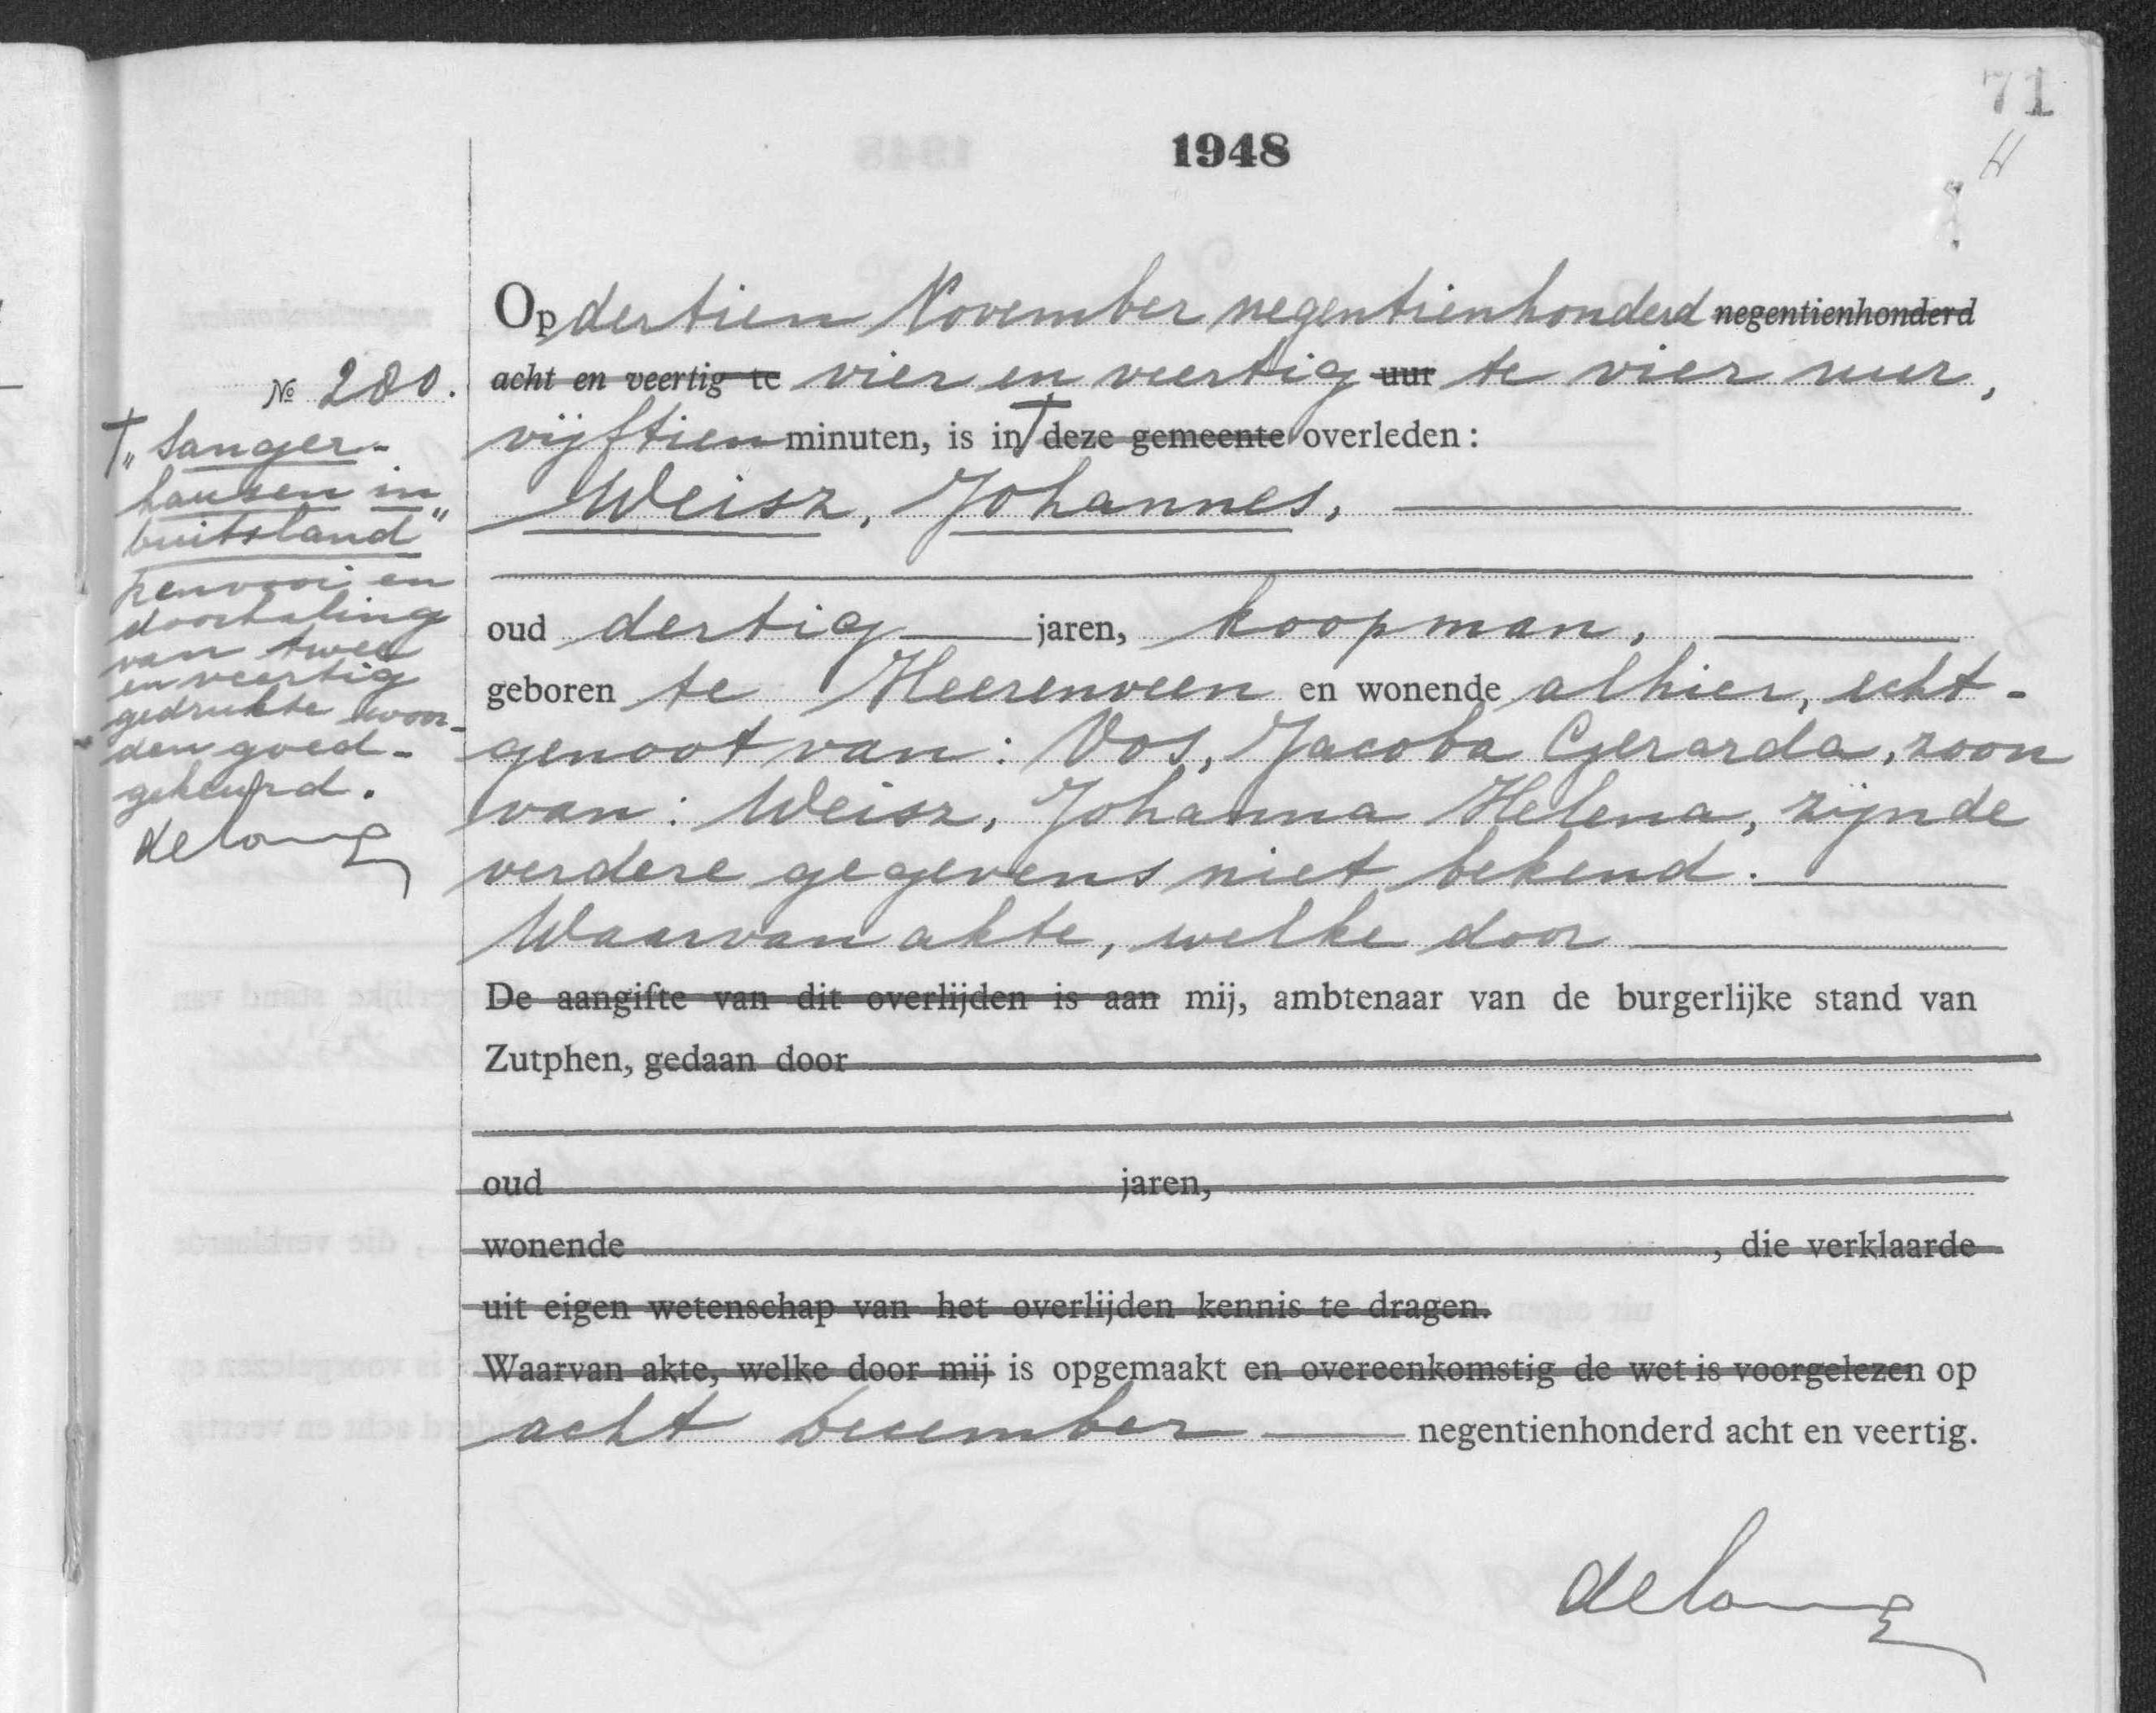 71
1948
Op dertien November negentienhonderd negentienhonderd
acht en veertig te vier en veertig uur te vier uur,
vijftien minuten, is in † deze gemeente overleden:
Weisz, Johannes,
oud dertig jaren, koopman,
geboren te Heerenveen en wonende alhier, echt-
genoot van: Vos, Jacoba Gerarda, zoon
van: Weisz, Johanna Helena, zijnde
verdere gegevens niet bekend.
Waarvan akte, welke door
De aangifte van dit overlijden is aan mij, ambtenaar van de burgerlijke stand van
Zutphen, gedaan door
oud jaren,
wonende , die verklaarde
uit eigen wetenschap van het overlijden kennis te dragen.
Waarvan akte, welke door mij is opgemaakt en overeenkomstig de wet is voorgelezen op
acht December negentienhonderd acht en veertig.
№ 280.
† „Sanger-
hausen in
buitsland"
renvooi en
doorhaling
van twee
en veertig
gedrukte woor-
den goed-
gekeurd.